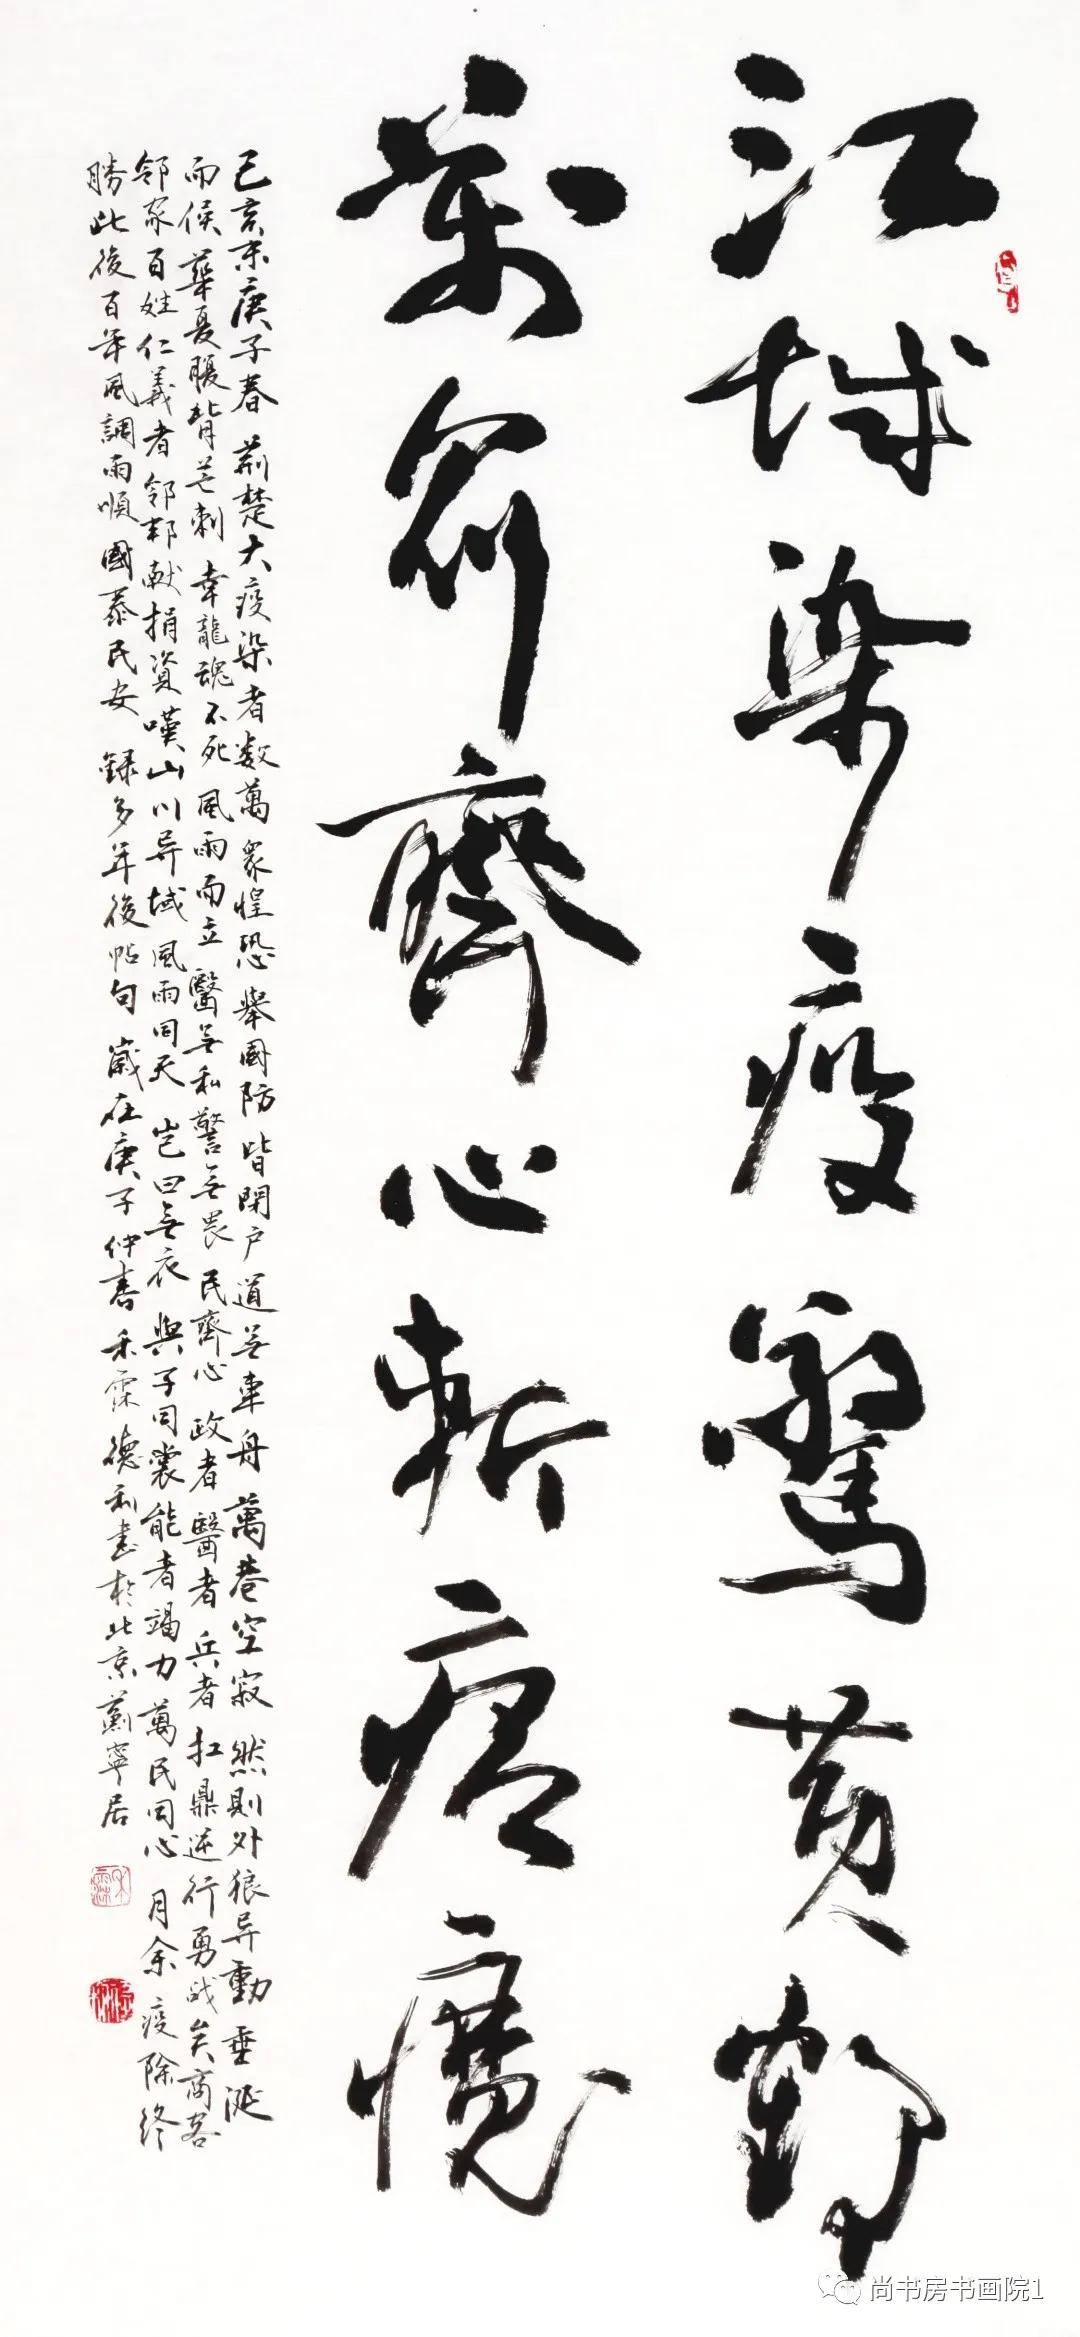 江城染疫驚黃鶴
萬眾齊心斬瘟魔
己亥末庚子春荊楚大疫染者数萬眾惶恐舉國防皆閉户道無車舟萬巷空寂然則外狼异動垂涎
而侯華夏腹背芒刺幸龍魂不死風雨而立醫無私警無畏民齊心政者醫者兵者扛鼎逆行勇战矣商客
邻家百姓仁義者邻邦献捐資嘆山川异域風雨同天岂曰無衣與子同裳能者竭力萬民同心月余疫除终
勝此後百年風調雨順國泰民安錄多年後帖句歲在庚子仲春禾霖德利書於北京蘭寧居
尚书房书画院1